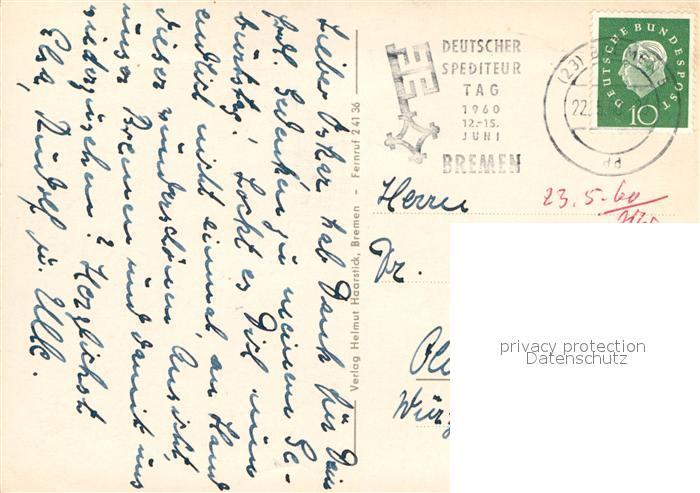 Lieber Oskar hab Dank für Dein
frdl. Gedenken zu meinem Ge-
burtstag! Lockt es Dich nun
endlich nicht einmal, an Hand
dieser wunderschönen Ansicht,
unser Bremen und damit uns
wiederzusehen? Herzlichst
Elsa, Rudolf u. Ulli.
Verlag Helmut Haarstick, Bremen - Fernruf 2 41 36
DEUTSCHER
SPEDITEUR
TAG
1960
12.-15.
JUNI
BREMEN
(23) BREMEN
22.5.
dd
DEUTSCHE BUNDESPOST
10
Herrn
23.5.60
Dr.
privacy protection
Datenschutz